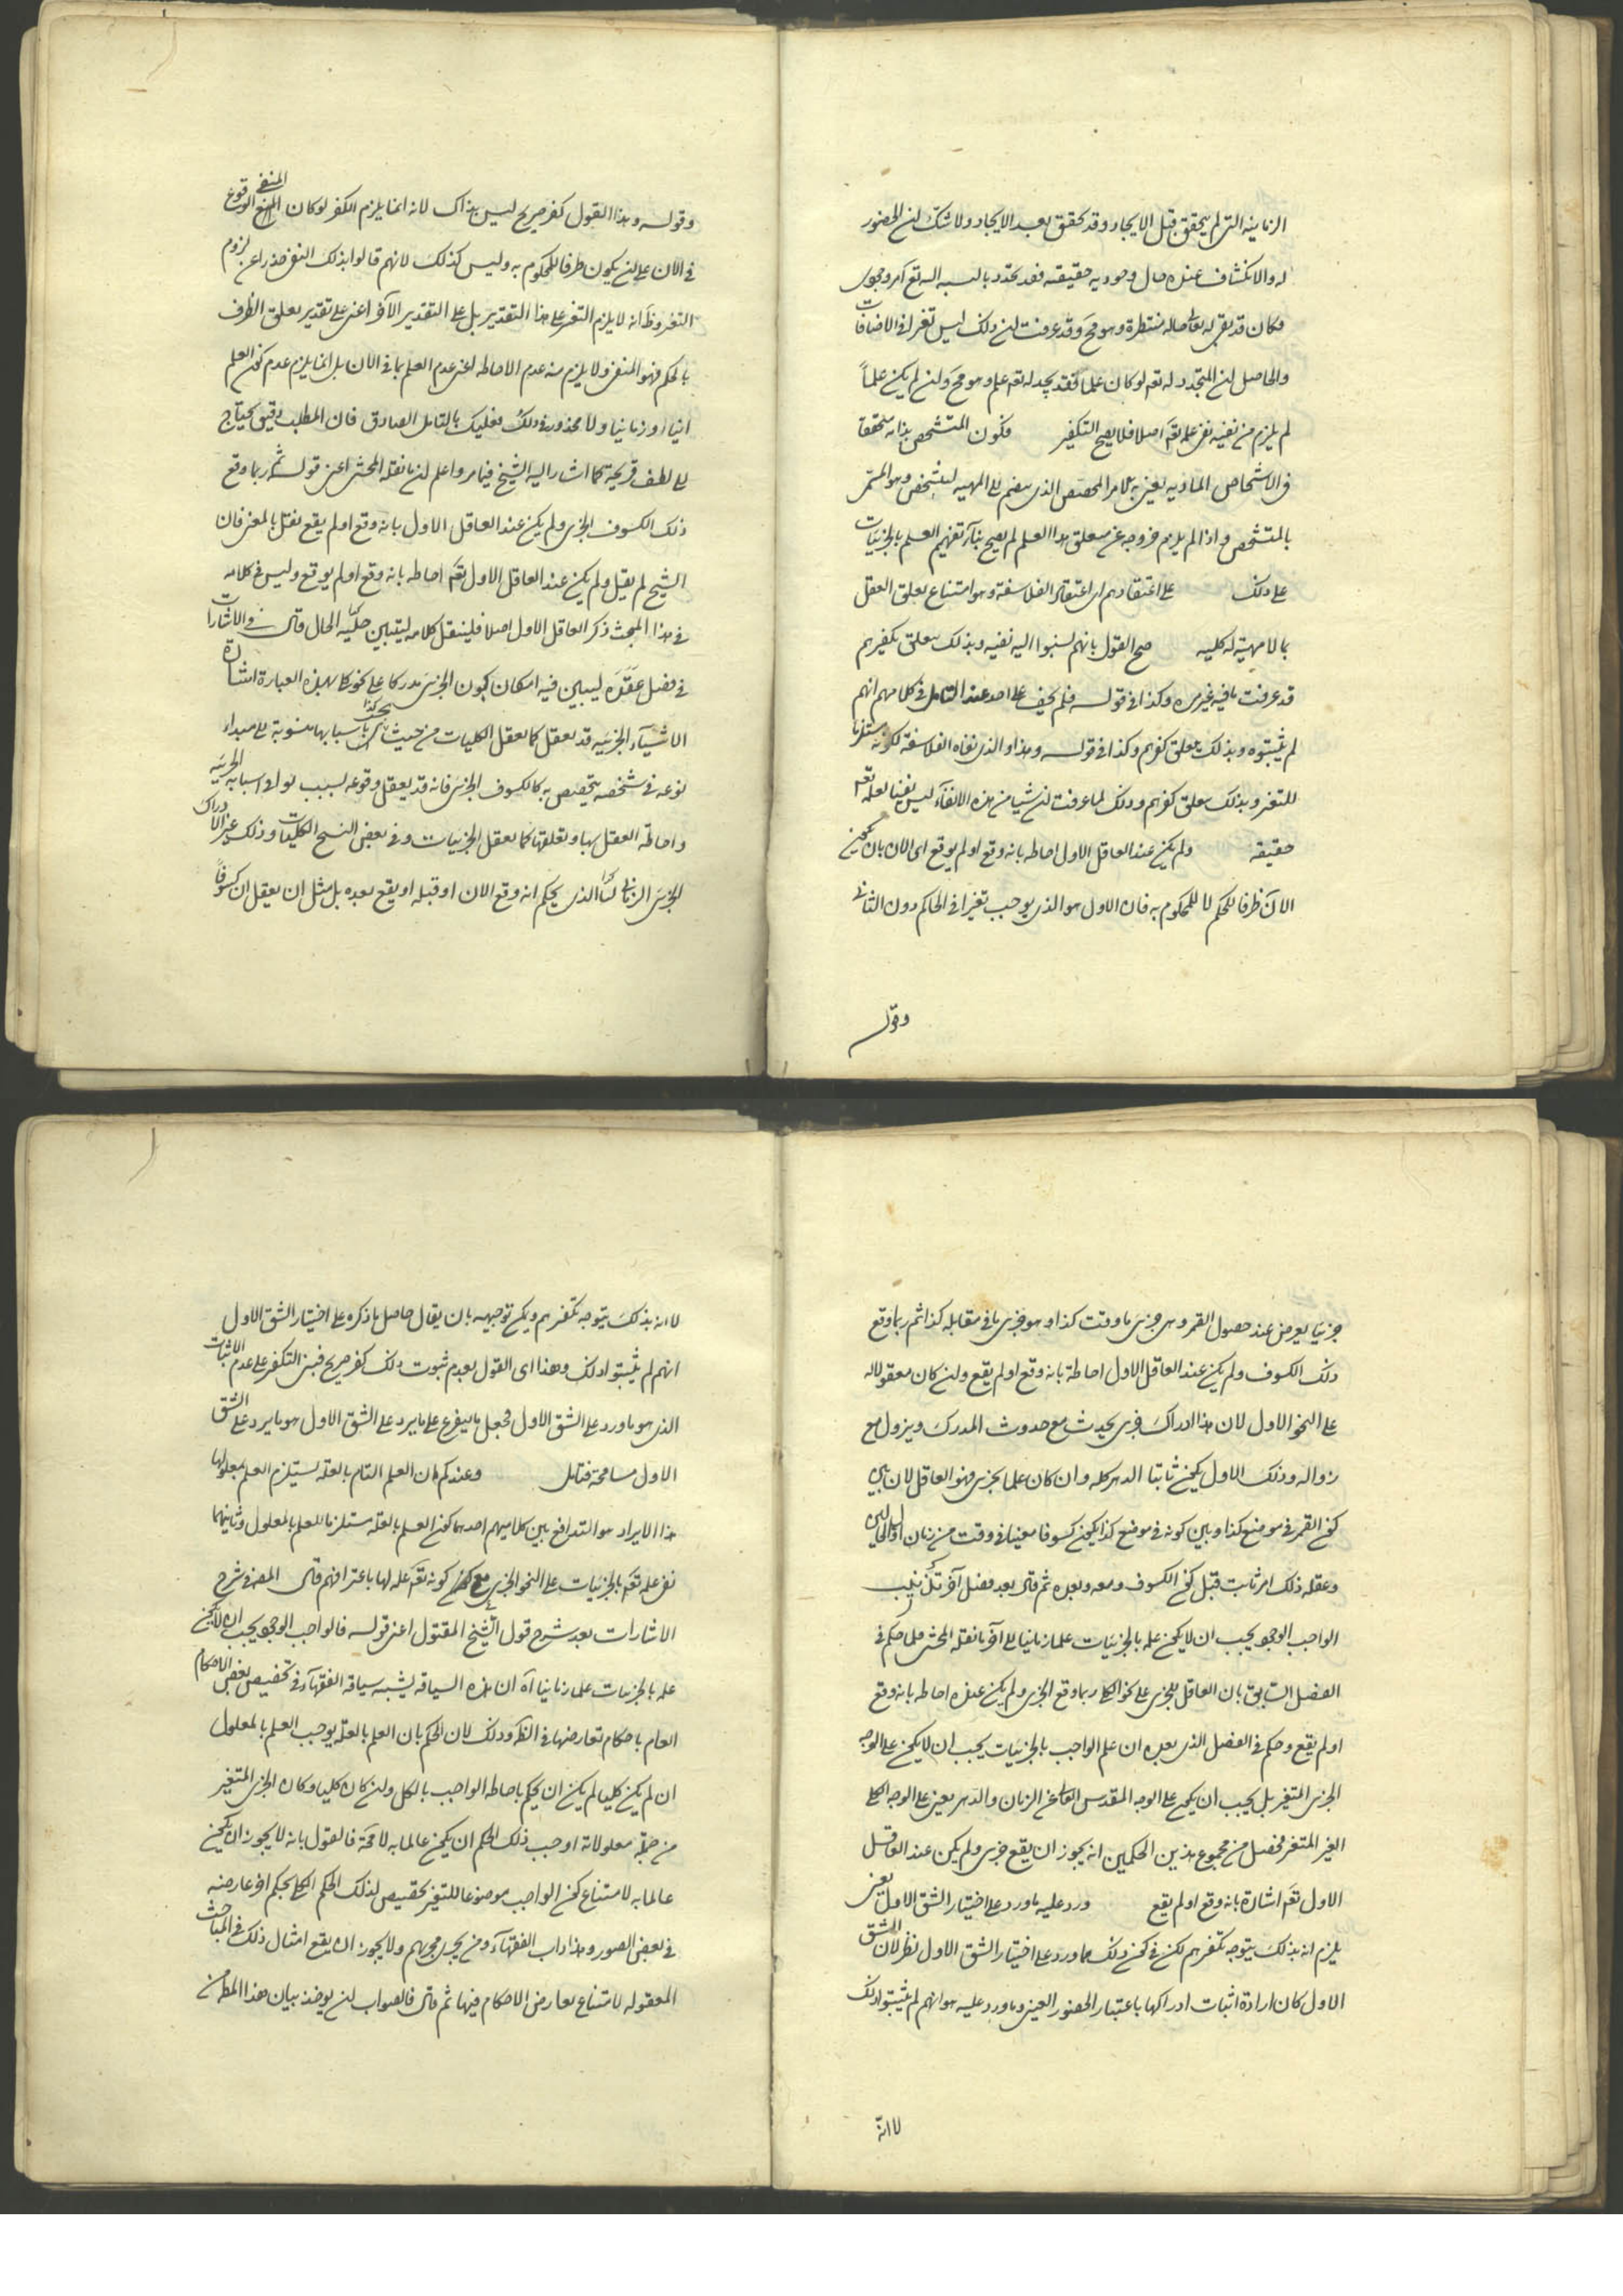 الزمانية التى لم يتحقق قبل الايجاد وقد تحقق بعد الايجاد ولا شك لن الحضور
له والانكشاف عنده حال وجوديه حقيقته فقد تجدد بالنسبة اليه تع امر وجودى
فكان قد بقى له تعالى حاله منتظرة وهو مح وقد عرفت لن ذلك ليس تغيرا فى الاضافات
والحاصل لن المتجدد له تع لو كان علما فقد يجد له تع علم وهو مح ولن لم يكن علماً
لم يلزم من نفيه نفى علمه تع اصلا فلا يصح التكفير فكون المتشخص بذاته متحققا
فى الاشخاص المادية يعنى به الامر المخصص الذى ينضم الى المهية ليتشخص وهو المسمى
بالمتشخص واذا لم يلزم خروجه عن متعلق هذا العلم لم يصح بناء نفيهم العلم بالجزئيات
على ذلك على اعتقادهم اى اعتقاد الفلاسفة وهو امتناع تعلق العقل
بما لا مهية له كلية صح القول بانهم لسبوا اليه نفيه وبذلك يتعلق تكفيرهم
قد عرفت ما فيه غير مره وكذا فى قوله فلم يخف على احد عند التامل فى كلامهم انهم
لم يثبتوه وبذلك يتعلق كفرهم وكذا فى قوله وهذا هو الذى نفاه الفلاسفة لكونه مستلزما
للتغير وبذلك يتعلق كفرهم وذلك لما عرفت لن شيا من هذه الانتفاء ليس نفيا لعلمه تع
حقيقة ولم يكن عند العاقل الاول احاطه بانه وقع او لم يوقع اى الان بان يكون
الآن ظرفا للحكم لا للمحكوم به فان الاول هو الذى يوجب تغيرا فى الحاكم دون الثانى
وقوله
وقوله وهذا القول كفر صريح ليس بذاك لانه انما يلزم الكفر لو كان المنفى الوقوع
فى الآن على لن يكون ظرفا للمحكوم به وليس كذلك لانهم قالوا بذلك النفى حذرا عن لزوم
التغير وظ انه لا يلزم التغير على هذا التقدير بل على التقدير الآخر اعنى على تقدير تعلق الظرف
بالحكم فهو المنفى ولا يلزم منه عدم الاحاطه اعنى عدم العلم بما فى الآن بل انما يلزم عدم كون العلم
آنيا او زمانيا ولا محذور فى ذلك فعليك بالتامل الصادق فان المطلب دقيق يحتاج
الى لطف قريحة كما اشار اليه الشيخ فيما مر واعلم لن ما نقله المحشى اعنى قوله ثم ربما وقع
ذلك الكسوف الجزى ولم يكن عند العاقل الاول بانه وقع او لم يقع نقل بالمعنى فان
الشيخ لم يقل ولم يكن عند العاقل الاول تع احاطه بانه وقع او لم يوقع وليس فى كلامه
فى هذا المبحث ذكر العاقل الاول اصلا فلينقل كلامه ليتبين جلية الحال قال فى الاشارات
فى فصل عقده ليبين فيه امكان كون الجزئى مدركا على نحو كلى بهذه العبارة اشارة
الاشياء الجزئية قد تعقل كما تعقل الكليات من حيث تجب باسبابها منسوبة الى مبداء
نوعه فى شخصه يتخصص به كالكسوف الجزئى فانه قد يعقل وقوعه لسبب توافى اسبابه الجزئية
واحاطة العقل بها وتعلقها كما تعقل الجزئيات وفى بعض النسخ الكليات وذلك غير الادراك
الجزئى الزمانى لها الذى يحكم انه وقع الان او قبله او يقع بعده بل مثل ان يعقل ان كسوفاً
جزئيا يعرض عند حصول القمر وهى جزئى ما وقت كذا وهو جزى ما فى مقابلة كذا ثم ربما وقع
ذلك الكسوف ولم يكن عند العاقل الاول احاطة بانه وقع او لم يقع ولن كان معقولا له
على النحو الاول لان هذا ادراك جزى يحدث مع حدوث المدرك ويزول مع
زواله وذلك الاول يكون ثابتا الدهر كله وان كان علما بجزى وهو العاقل لان بين
كون القمر فى موضع كذا وبين كونه فى موضع كذا يكون كسوفا معينا فى وقت من زمان اول الحالين
وعقله ذلك امر ثابت قبل كون الكسوف ومعه وبعده ثم قال بعد فصل آخر تذنيب
الواجب الوجود يجب ان لا يكون علمه بالجزئيات علما زمانيا الى آخر ما نقله المحشى فلما حكم فى
الفصل السابق بان العاقل للجزى على نحو الكلى ربما وقع الجزى ولم يكن عنده احاطه بانه وقع
او لم يقع وحكم فى الفصل الذى بعده ان علم الواجب بالجزئيات يجب ان لا يكون على الوجه
الجزى المتغير بل يجب ان يكون على الوجه المقدس العالى عن الزمان والدهر يعنى على الوجه الكلى
الغير المتغير فحصل من مجموع هذين الحكمين انه يجوز ان يقع جزى ولم يكن عند العاقل
الاول تع اشارة بانه وقع او لم يقع ورد عليه ما ورد على اختيار الشق الاول يعنى
يلزم انه بذلك يتوجه تكفيرهم لكن فى كون ذلك مما ورد على اختيار الشق الاول نظر لان الشق
الاول كان ارادة اثبات ادراكها باعتبار الحضور العينى وما ورد عليه هو انهم لم يثبتوا ذلك
لا انه
لا انه بذلك يتوجه تكفيرهم ويمكن توجيهه بان يقال حاصل ما ذكره على اختيار الشق الاول
انهم لم يثبتوا ذلك وهذا اى القول بعدم ثبوت ذلك كفر صريح فبنى التكفير على عدم الاثبات
الذى هو ما ورد على الشق الاول فجعل ما يتفرع على ما يرد على الشق الاول هو ما يرد على الشق
الاول مسامحة فتامل وعندكم ان العلم التام بالعلة يستلزم العلم بمعلولها
هذا الايراد هو التدافع بين كلاميهم احدهما كون العلم بالعلة مستلزما للعلم بالمعلول وثانيهما
نفى علمه تع بالجزئيات على النحو الجزى مع كونه تع علة لها باعترافهم قال المص فى شرح
الاشارات بعد شرح قول الشيخ المقتول اعنى قوله فالواجب الوجود يجب ان لا يكون
علمه بالجزئيات علما زمانيا آه ان هذه السياقة يشبه سياقة الفقهاء فى تخصيص بعض الاحكام
العام باحكام تعارضها فى الظ وذلك لان الحكم بان العلم بالعلة يوجب العلم بالمعلول
ان لم يكن كليا لم يكن ان يحكم باحاطه الواجب بالكل ولن كان كليا وكان الجزى المتغير
من جملة معلولاته اوجب ذلك الحكم ان يكون عالما به لا محة فالقول بانه لا يجوز ان يكون
عالما به لامتناع كون الواجب موضوعا للتغير تخصيص لذلك الحكم الكلى بحكم آخر عارضه
فى بعض الصور وهذا داب الفقهاء ومن يجرى مجراهم ولا يجوز ان يقع امثال ذلك فى المباحث
المعقوله لامتناع تعارض الاحكام فيها ثم قال فالصواب لن يوخذ بيان هذا المط من